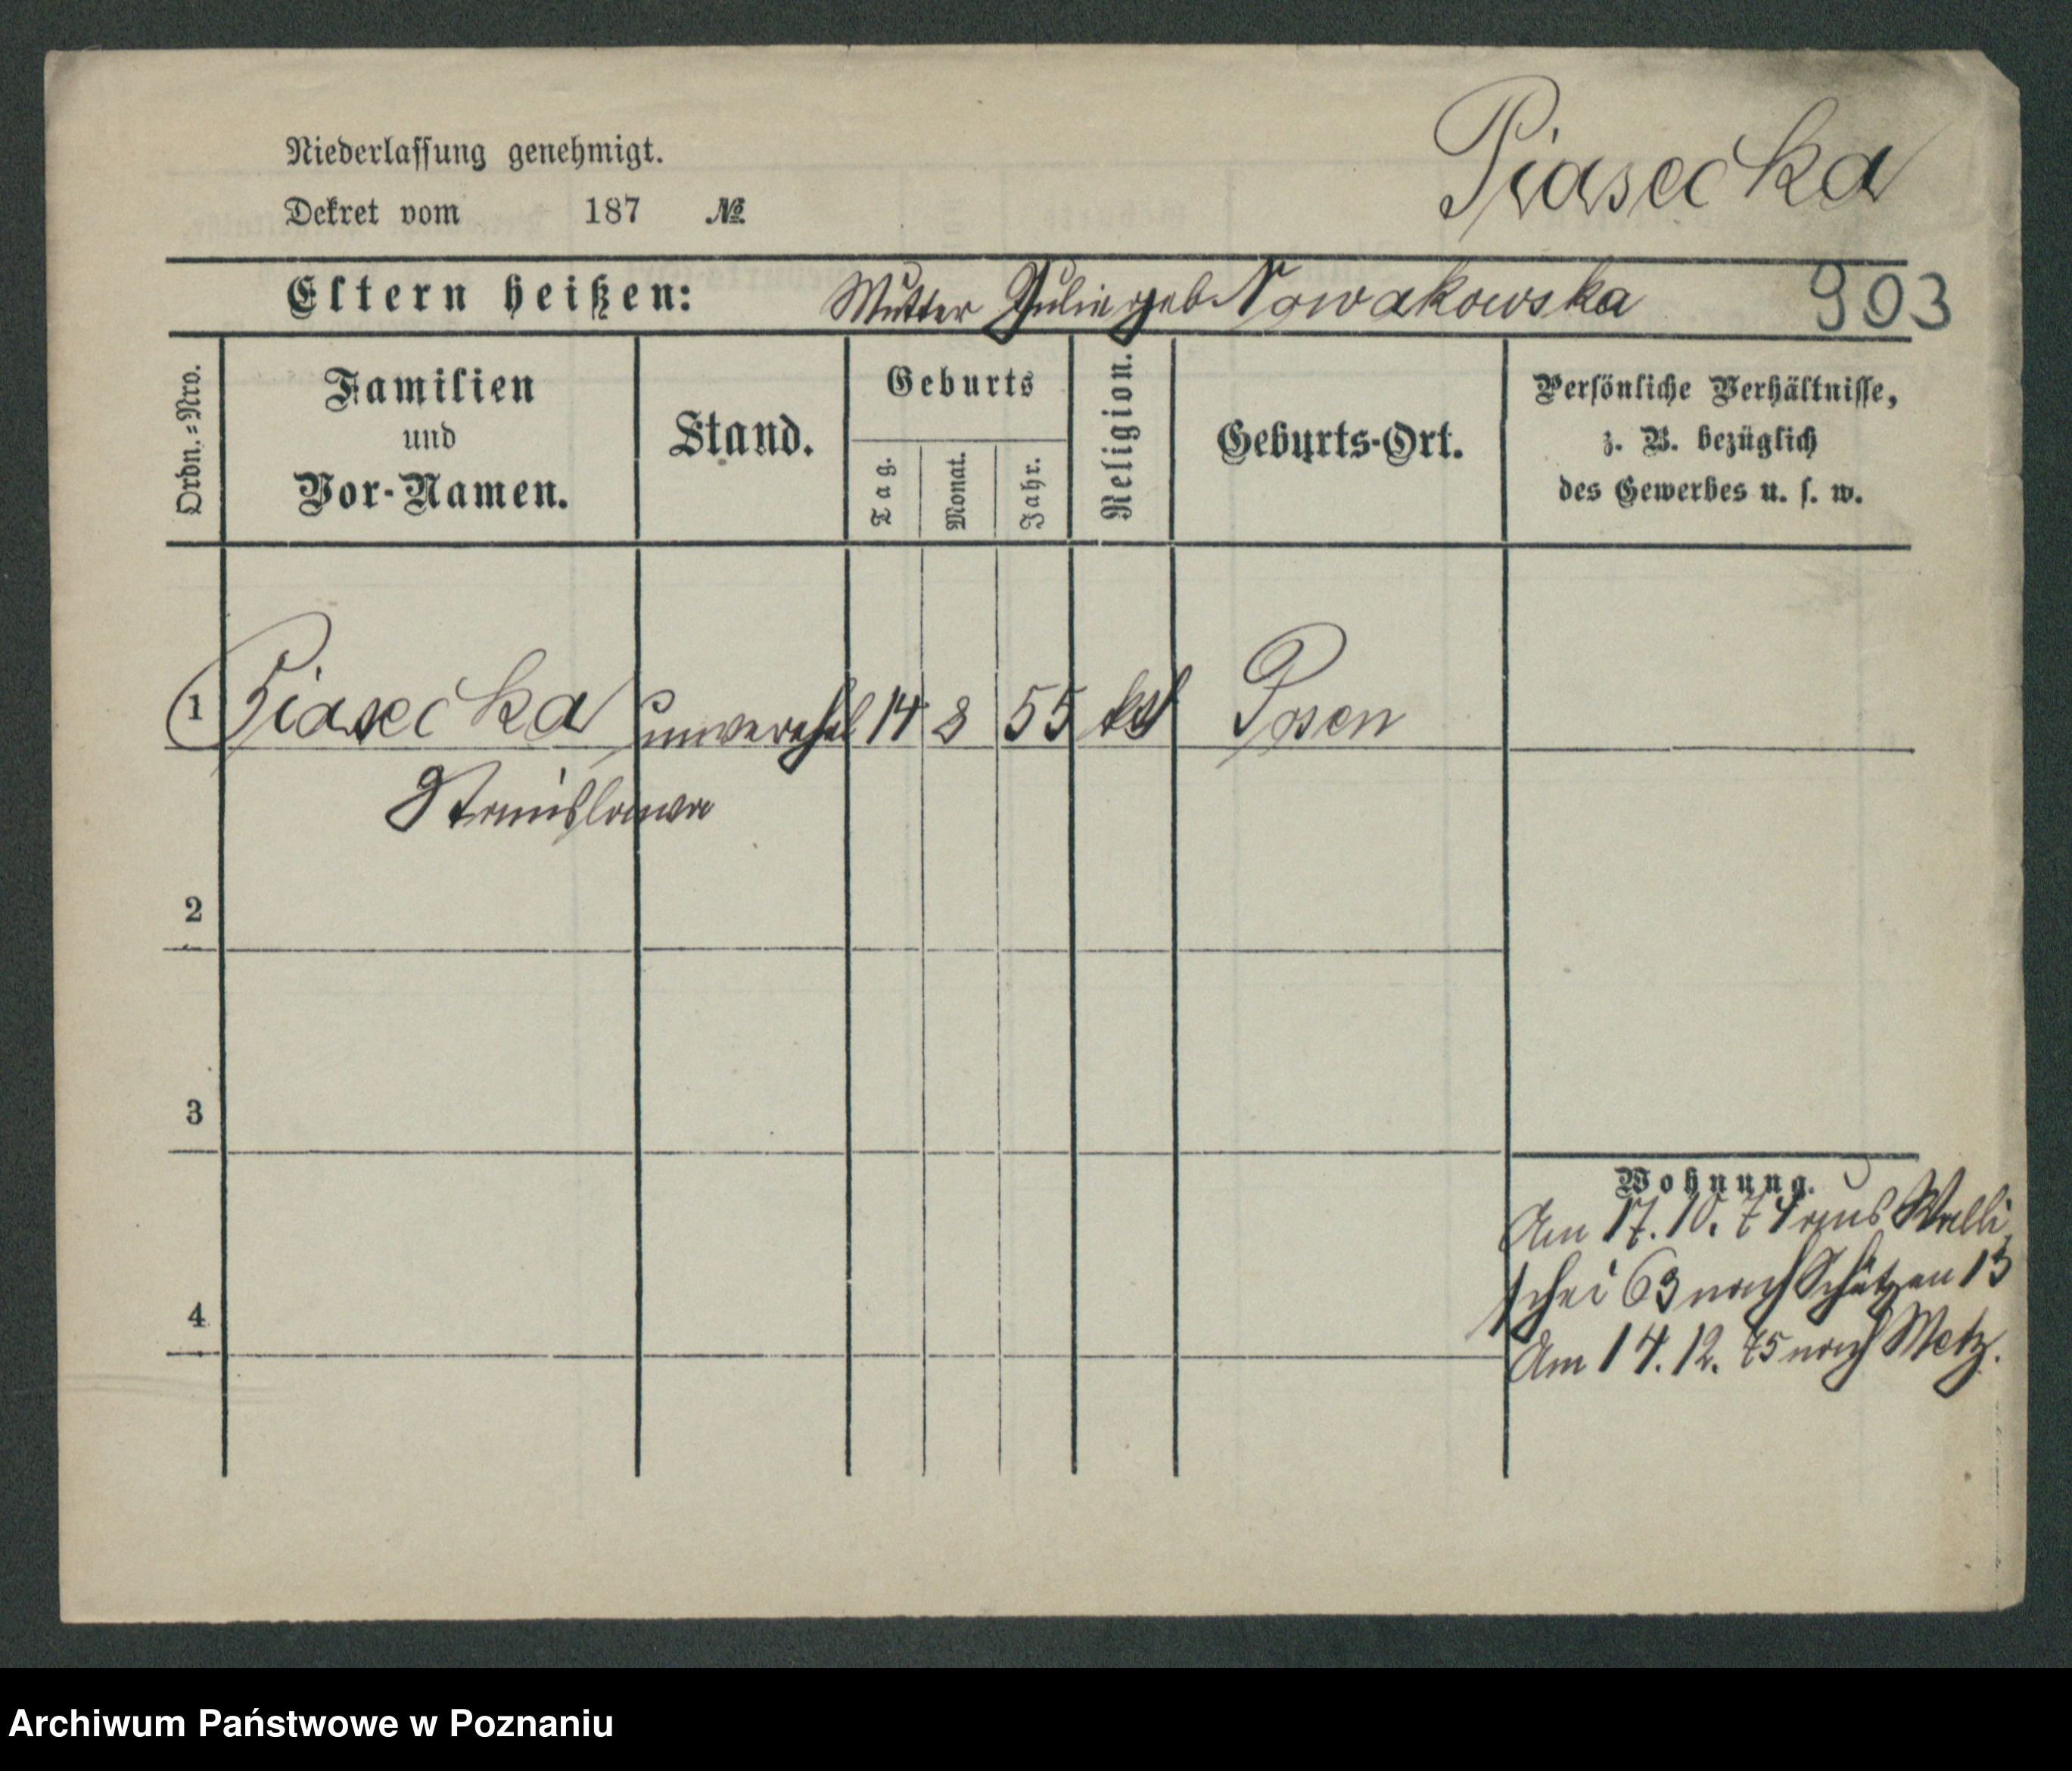 Piasecka
Niederlassung genehmigt.
Dekret vom 187 №
Eltern heißen: Mutter Julie geb Nowakowska
903
Ordn.=Nro.
Familien
und
Vor-Namen.
Stand.
Geburts
Tag.
Monat.
Jahr.
Religion.
Geburts-Ort.
Persönliche Verhältnisse,
z. B. bezüglich
des Gewerbes u. s. w.
1 Piasecka unverehel 14 8 55 kth Posen
Stanislawa
2
3
4
Wohnung.
Am 17. 10. 74 aus Walli
schei 63 nach Schützen 13
Am 14. 12. 75 nach Metz.
Archiwum Państwowe w Poznaniu